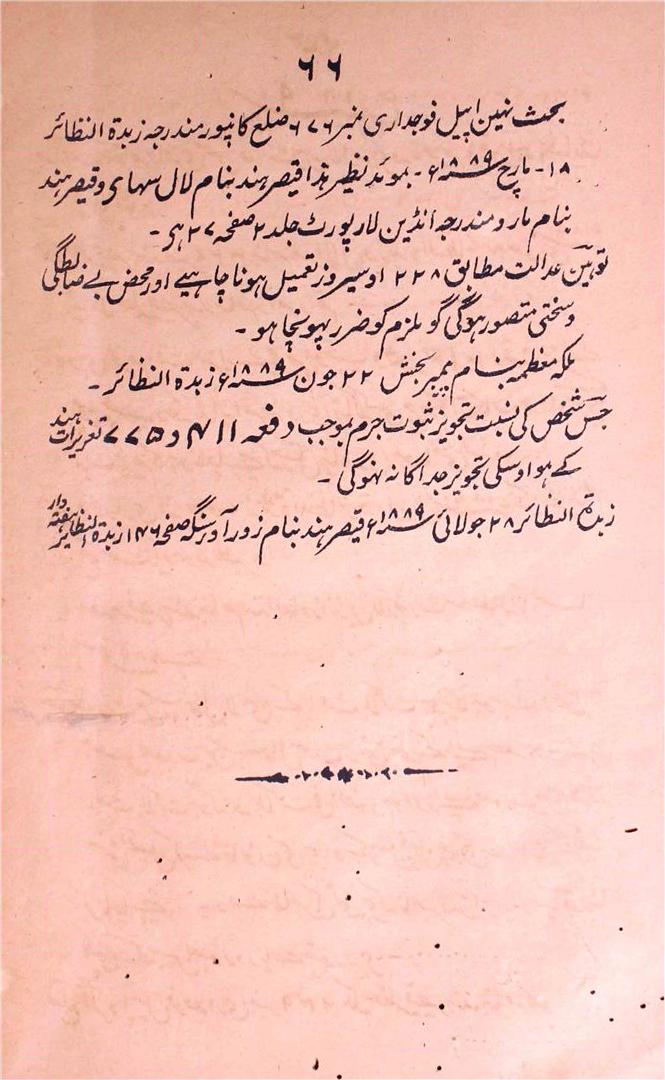 ۶۶
بحث نہین اپیل فوجداری نمبر ۶۷۶ ضلع کانپور مندرجہ زبدۃ النظائر
۱۸ - مارچ ۱۸۸۹ء - بموئد نظیر ہذا قیصر ہند بنام لال سہاے و قیصر ہند
بنام مارو مندرجہ انڈین لا رپورٹ جلد ۲ صفحہ ۲۷ ہی -
توہین عدالت مطابق ۲۲۸ اوسیروز تعمیل ہونا چاہیے اور محض بے ضابطگی
و سختی متصور ہوگی گو ملزم کو ضرر پہونچا ہو -
ملکہ معظمہ بنام پیمبر بخش ۲۲ جون ۱۸۸۹ء زبدۃ النظائر -
جس شخص کی نسبت تجویز ثبوت جرم بموجب دفعہ ۴۱۱ و ۷۷۵ تعزیرات ہند
کے ہو اوسکی تجویز جداگانہ نہوگی -
زبدۃ النظائر ۲۸ جولائی ۱۸۸۹ء قیصر ہند بنام زور آور سنگہ صفحہ ۱۴۶ زبدۃ النظائر ہفتہ وار